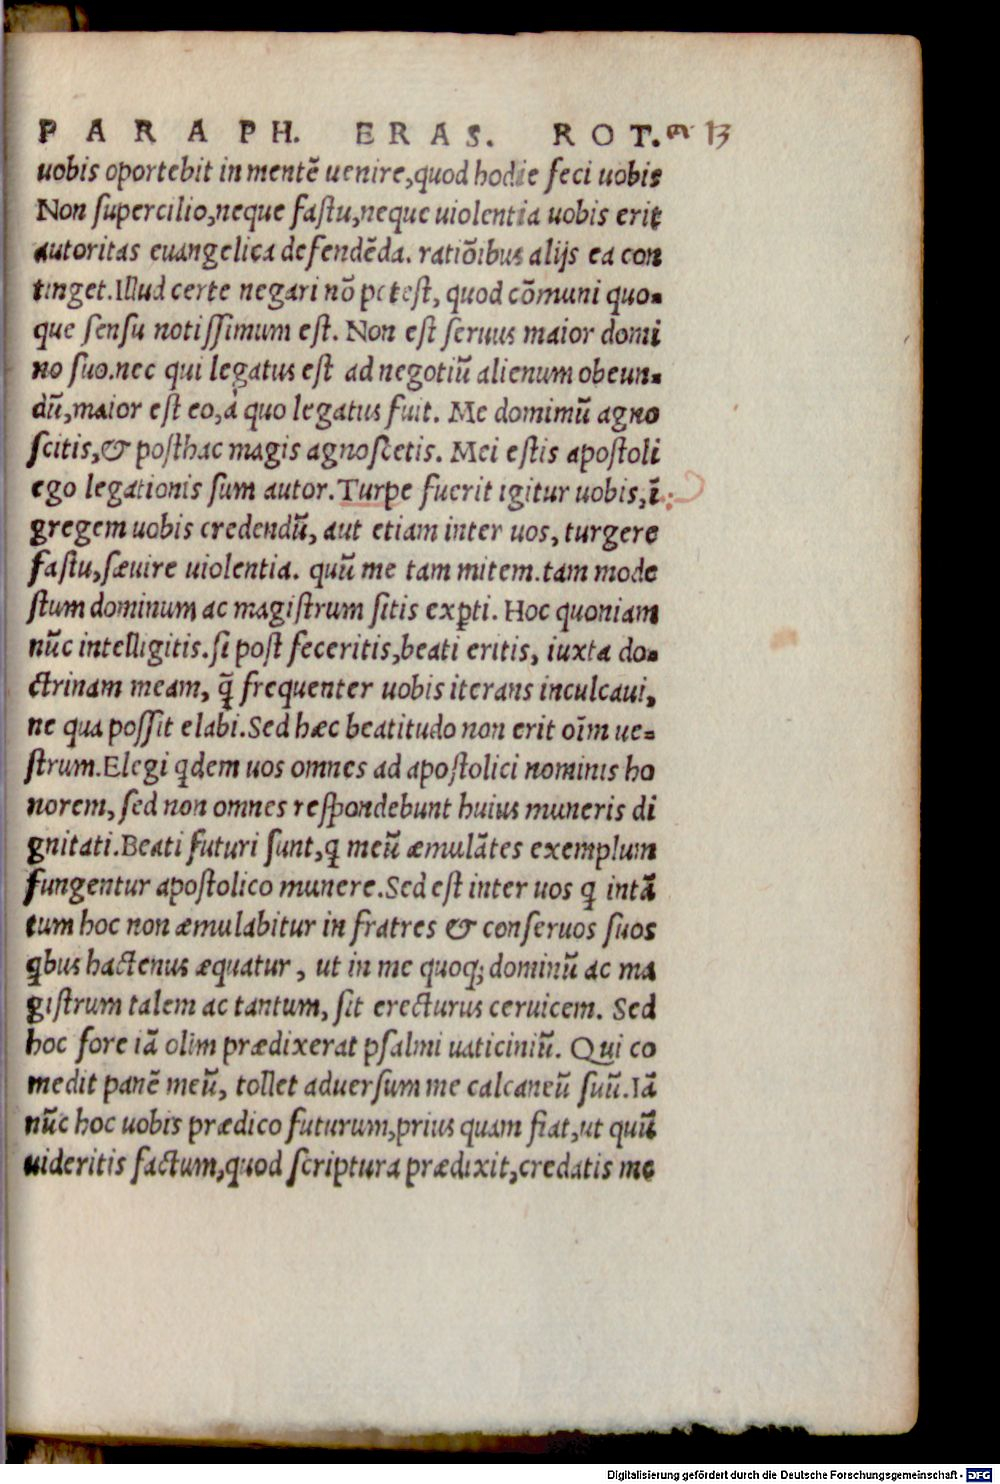 PARAPH. ERAS. ROT. 13
uobis oportebit in mentẽ uenire,quod hodie feci uobis
Non supercilio,neque fastu,neque uiolentia uobis erit
autoritas euangelica defendẽda. ratiõibus alijs ea con
tinget.Illud certe negari nõ potest, quod cõmuni quo-
que sensu notissimum est. Non est seruus maior domi
no suo.nec qui legatus est ad negotiũ alienum obeun-
dũ,maior est eo,à quo legatus fuit. Me domimũ agno
scitis,& posthac magis agnoscetis. Mei estis apostoli
ego legationis sum autor.Turpe fuerit igitur uobis,ĩ
gregem uobis credendũ, aut etiam inter uos, turgere
fastu,sæuire uiolentia. quũ me tam mitem.tam mode
stum dominum ac magistrum sitis exꝑti. Hoc quoniam
nũc intelligitis.si post feceritis,beati eritis, iuxta do-
ctrinam meam, q̃ frequenter uobis iterans inculcaui,
ne qua possit elabi.Sed hæc beatitudo non erit oĩm ue-
strum.Elegi ꝗdem uos omnes ad apostolici nominis ho
norem, sed non omnes respondebunt huius muneris di
gnitati.Beati futuri sunt,ꝗ meũ æmulãtes exemplum
fungentur apostolico munere.Sed est inter uos ꝗ intã
tum hoc non æmulabitur in fratres & conseruos suos
ꝗbus hactenus æquatur, ut in me quoq; dominũ ac ma
gistrum talem ac tantum, sit erecturus ceruicem. Sed
hoc fore iã olim prædixerat psalmi uaticiniũ. Qui co
medit panẽ meũ, tollet aduersum me calcaneũ suũ.Iã
nũc hoc uobis prædico futurum,prius quam fiat,ut quũ
uideritis factum,quod scriptura prædixit,credatis me
Digitalisierung gefördert durch die Deutsche Forschungsgemeinschaft - DFG